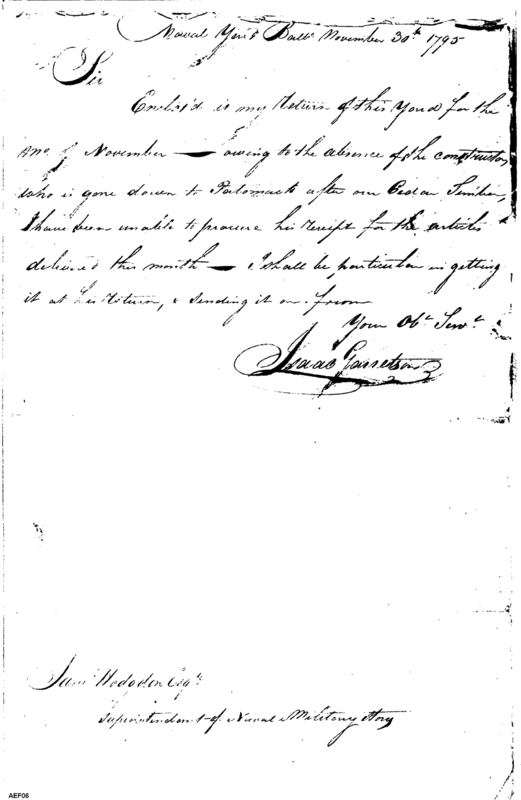 Naval Yard Balto November 30th 1795
Sir
Enclos'd is my Return of this Yard for the
Mo. of November — owing to the absence of the constructor
who is gone down to Patomack after our Cedar Timber,
I have been unable to procure his receipt for the articles
delivered this month — I shall be particular in getting
it at his return, & sending it on. from
Your Obt. Servt.
Isaac Garretson
Saml Hodgdon Esqr.
Superintendant of Naval & Military Stors
AEF06